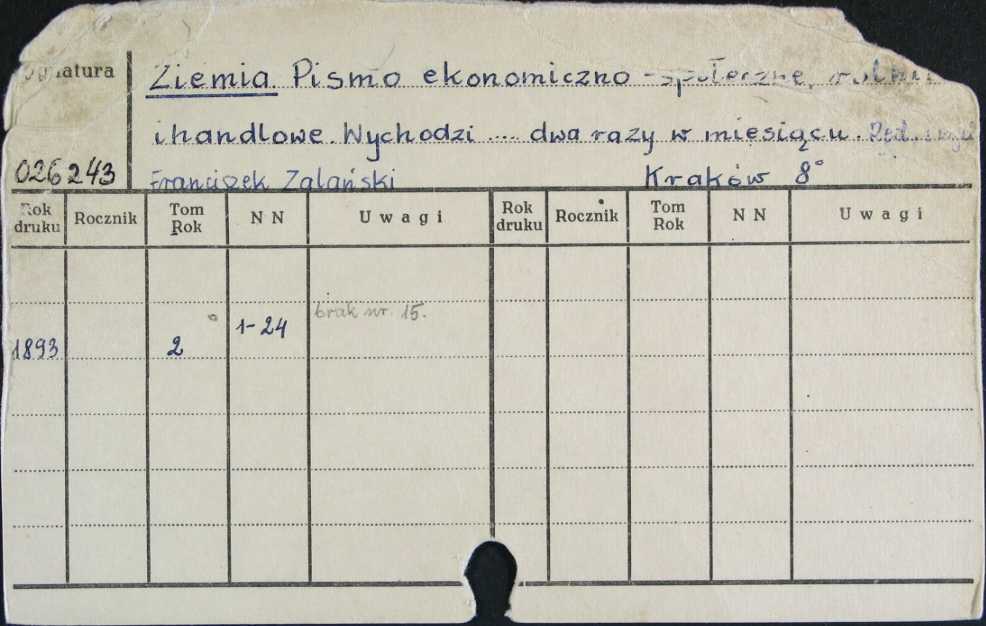 Signatura
Ziemia Pismo ekonomiczno-społeczne,
i handlowe. Wychodzi .... dwa razy w miesiącu.
026243
Franciszek Zglański Kraków 8°
Rok druku Rocznik Tom Rok N N Uwagi Rok druku Rocznik Tom Rok N N Uwagi
1893 2 1-24 brak nr. 15.